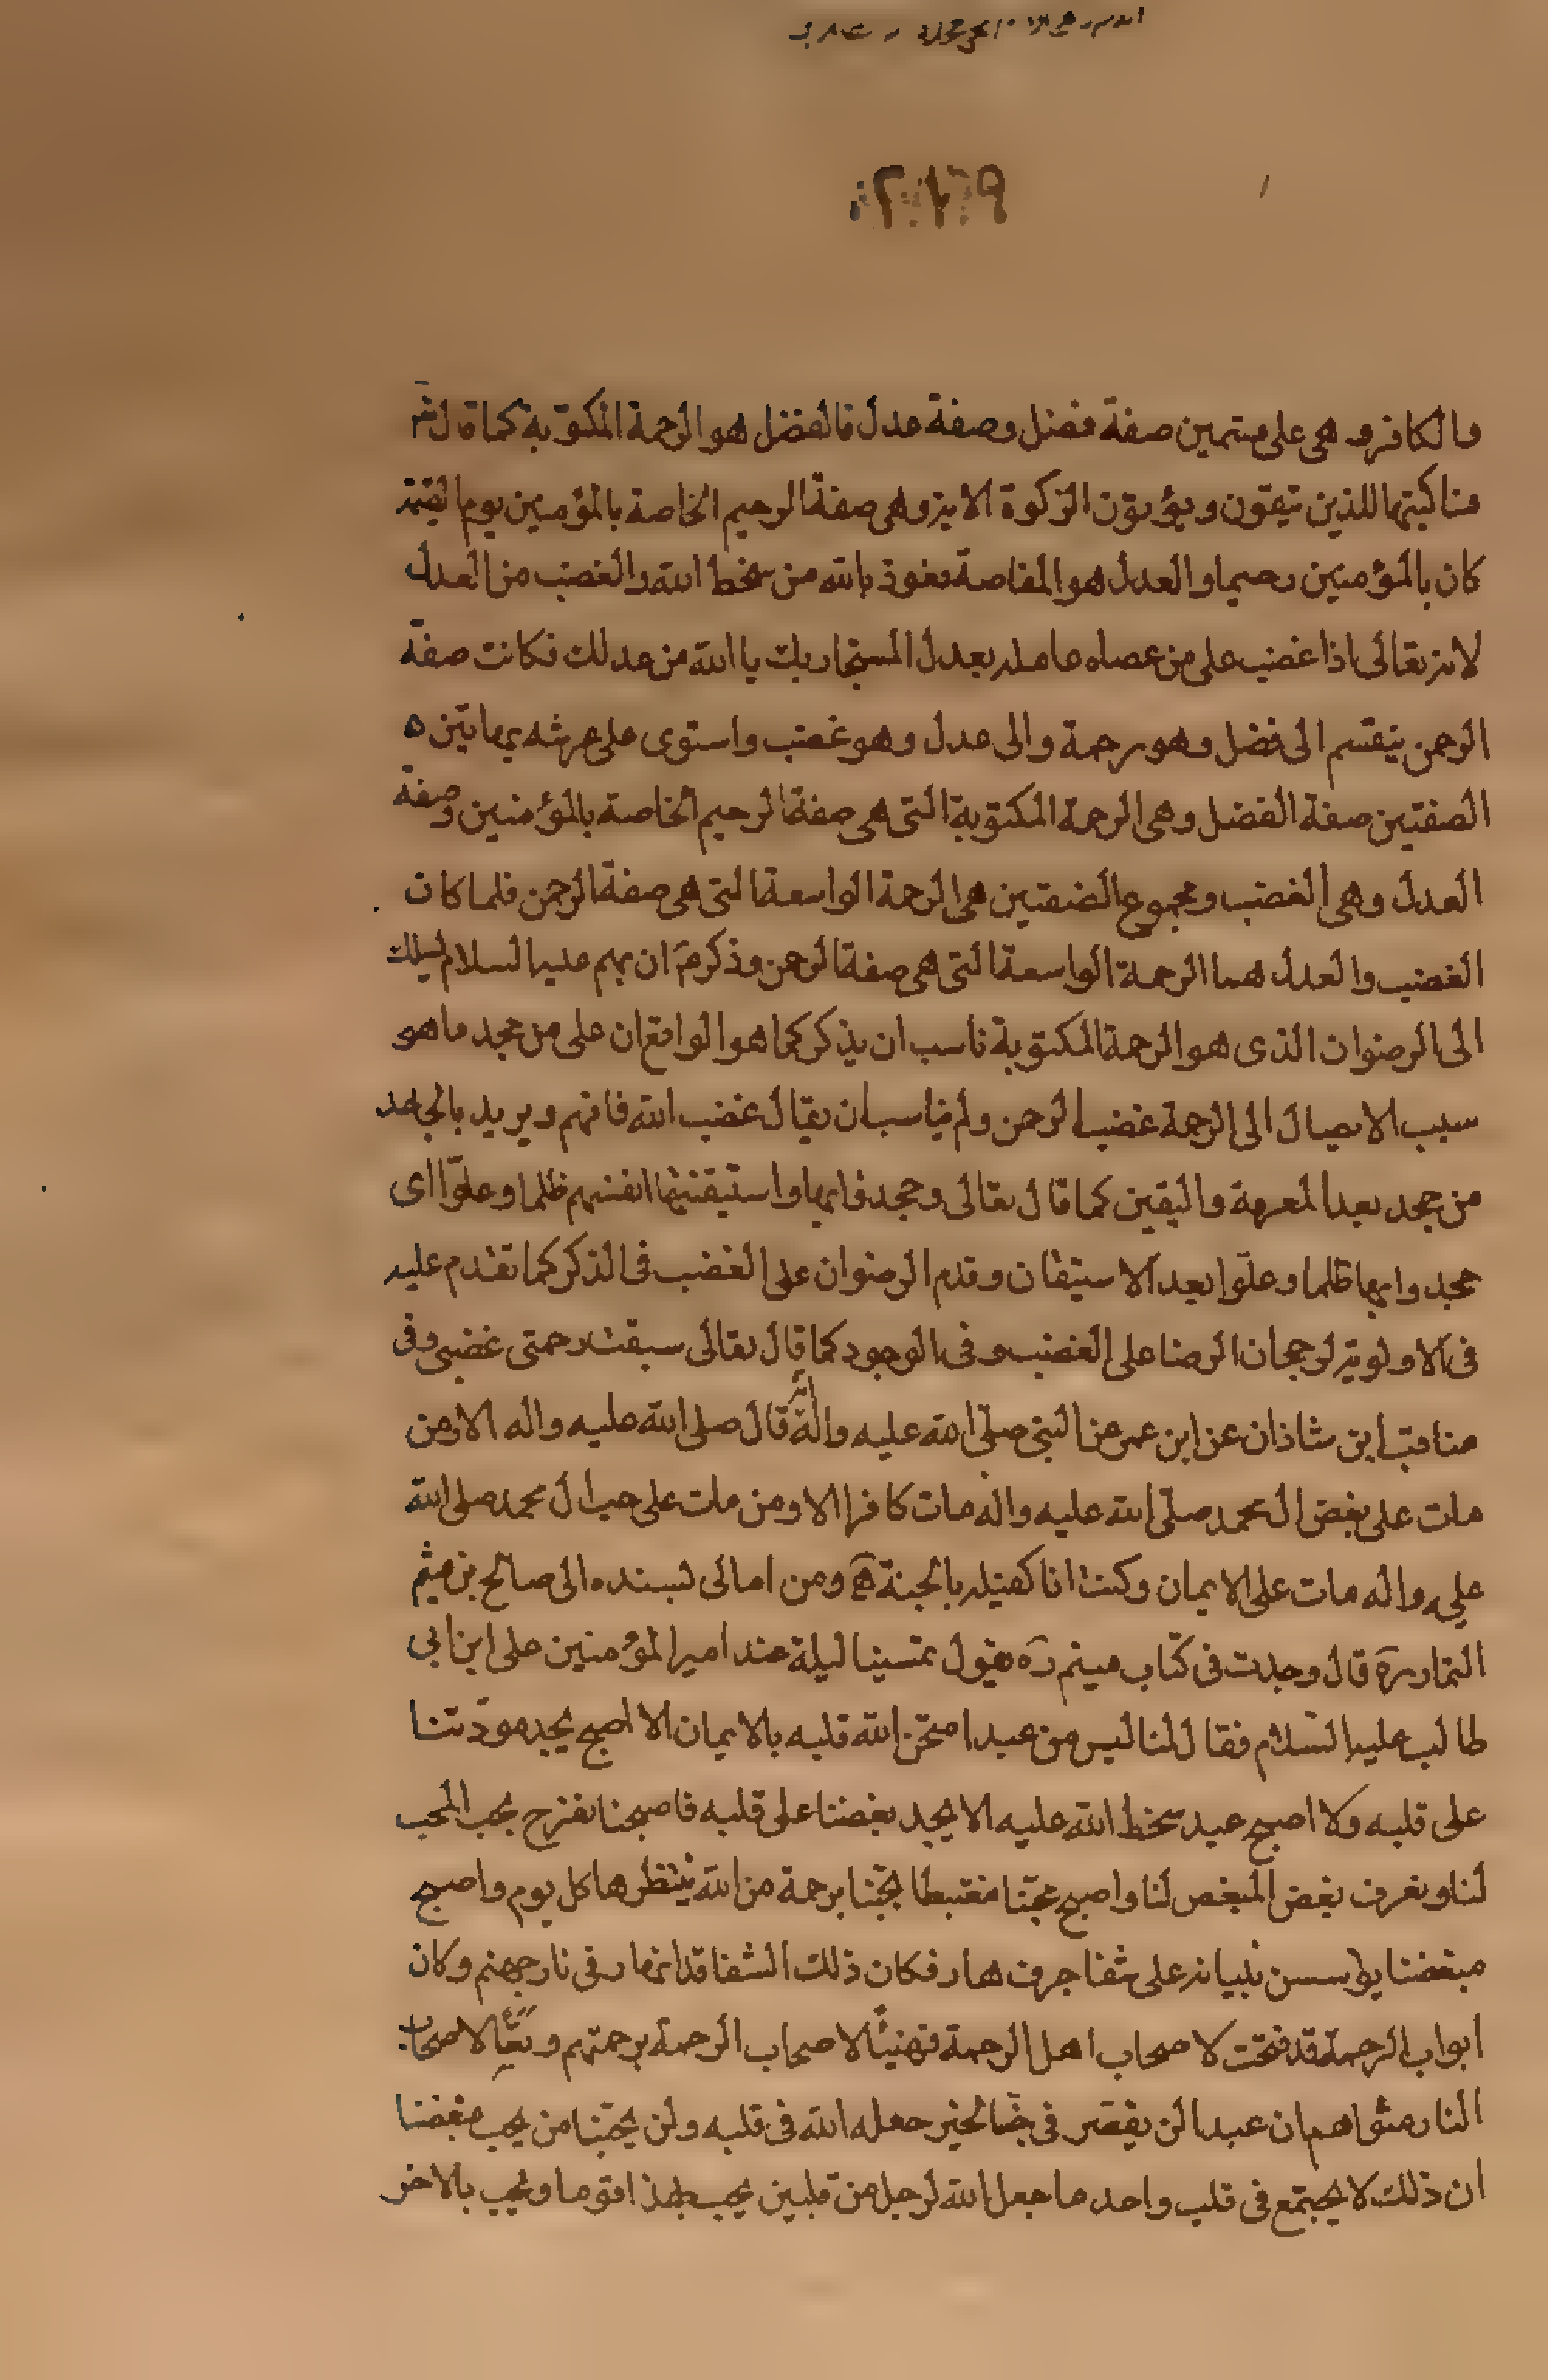 والكافر وهى على قسمين صفة فضل وصفة عدل فالفضل هو الرحمة المكتوبة كما قال تم
فسأكتبها للذين يتقون ويؤتون الزكوة الاية وهى صفة الرحيم الخاصة بالمؤمنين يوم القيمة
كان بالمؤمنين رحيما والعدل هو المقاصة نعوذ بالله من سخط الله والغضب من العدل
لانه تعالى اذا غضب على من عصاه عامله بعدل المستجار بك يا الله من عدلك فكانت صفة
الرحمن ينقسم الى فضل وهو رحمة والى عدل وهو غضب واستوى على عرشه بهاتين
الصفتين صفة الفضل وهى الرحمة المكتوبة التى هى صفة الرحيم الخاصة بالمؤمنين وصفة
العدل وهى الغضب ومجموع الصفتين هى الرحمة الواسعة التى هى صفة الرحمن فلما كان
الغضب والعدل هما الرحمة الواسعة التى هى صفة الرحمن وذكر ع ان بهم عليه السلام يسلك
الى الرضوان الذى هو الرحمة المكتوبة ناسب ان يذكر كما هو الواقع ان على من جحد ما هو
سبب الايصال الى الرحمة غضب الرحمن ولم يناسب ان يقال غضب الله فافهم ويريد بالجاحد
من جحد بعد المعرفة واليقين كما قال تعالى وجحدوا بها واستيقنتها انفسهم ظلما وعلوّا اى
جحدوا بها ظلما وعلوّا بعد الاستيقان وقدم الرضوان على الغضب فى الذكر كما تقدم عليه
فى الاولوية لرجحان الرضا على الغضب وفى الوجود كما قال تعالى سبقت رحمتى غضبى وفى
مناقب ابن شاذان عن ابن عمر عن النبي صلّى الله عليه واله انه قال صلى الله عليه واله الا ومن
مات على بغض ال محمد صلّى الله عليه واله مات كافرا الا ومن مات على حب ال محمد صلى الله
عليه واله مات على الايمان وكنت انا كفيله بالجنة ومن امالى بسنده الى صالح بن ميثم
التمار ره قال وجدت فى كتاب ميثم ره يقول تمسينا ليلة عند امير المؤمنين على ابن ابى
طالب عليه السّلام فقال لنا ليس من عبد امتحن الله قلبه بالايمان الا اصبح يجد مودّتنا
على قلبه ولا اصبح عبد سخط الله عليه الا يجد بغضنا على قلبه فاصبحنا نفرح بحب المحب
لنا ونعرف بغض المبغض لنا واصبح محبّنا مغتبطا بحبّنا برحمة من الله ينتظرها كل يوم واصبح
مبغضنا يؤسسن بنيانه على شفا جرف هار فكان ذلك الشفا قد انهار فى نار جهنم وكان
ابواب الرحمة قد فتحت لاصحاب اهل الرحمة فهنيئًا لاصحاب الرحمة برحمتهم وتعسًا لاصحاب
النار مثواهم ان عبدا لن يقصّر فى حبّنا لخير جعله الله فى قلبه ولن يحبّنا من يحب مبغضنا
ان ذلك لا يجتمع فى قلب واحد ما جعل الله لرجل من قلبين يحب بهذا قوما ويحب بالاخر